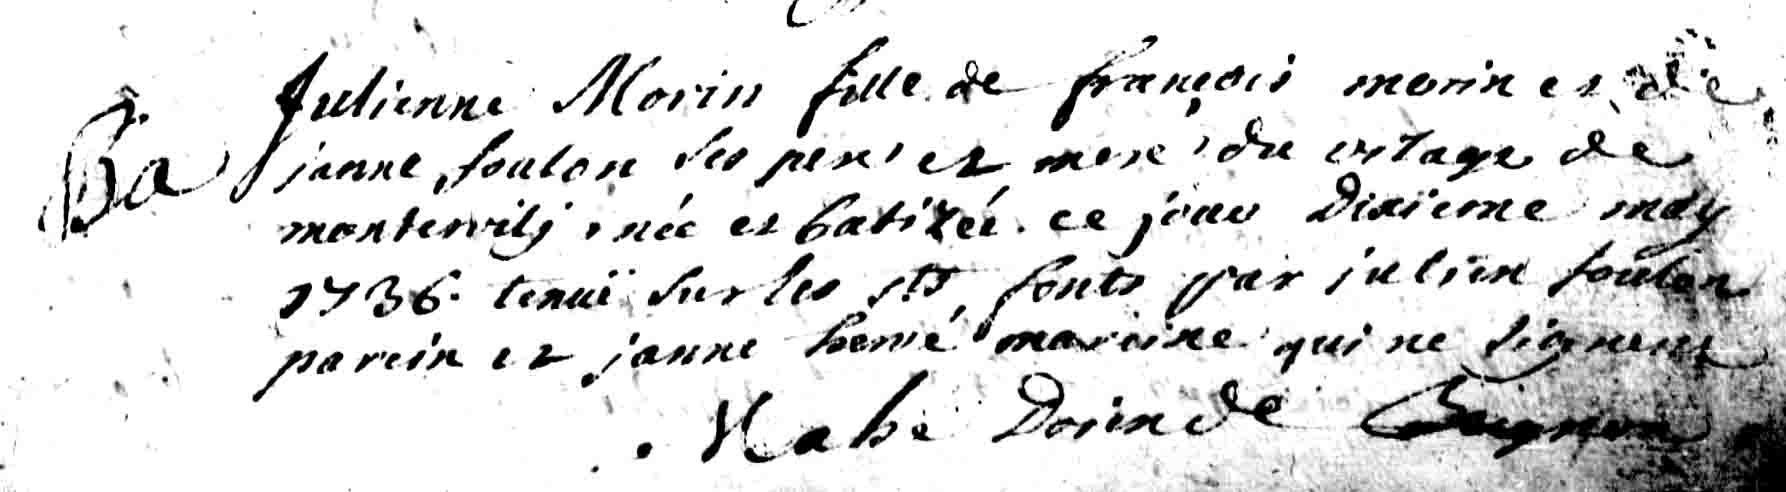 Ba
Julienne Morin fille de françois morin et de
janne foulon ses pere et mere du vilage de
montervily née et batizée ce jour Dixieme may
1736. tenuë sur les sts fonts par julien foulon
parein et janne hervé mareine qui ne signent
Mahé Doien de Beignon